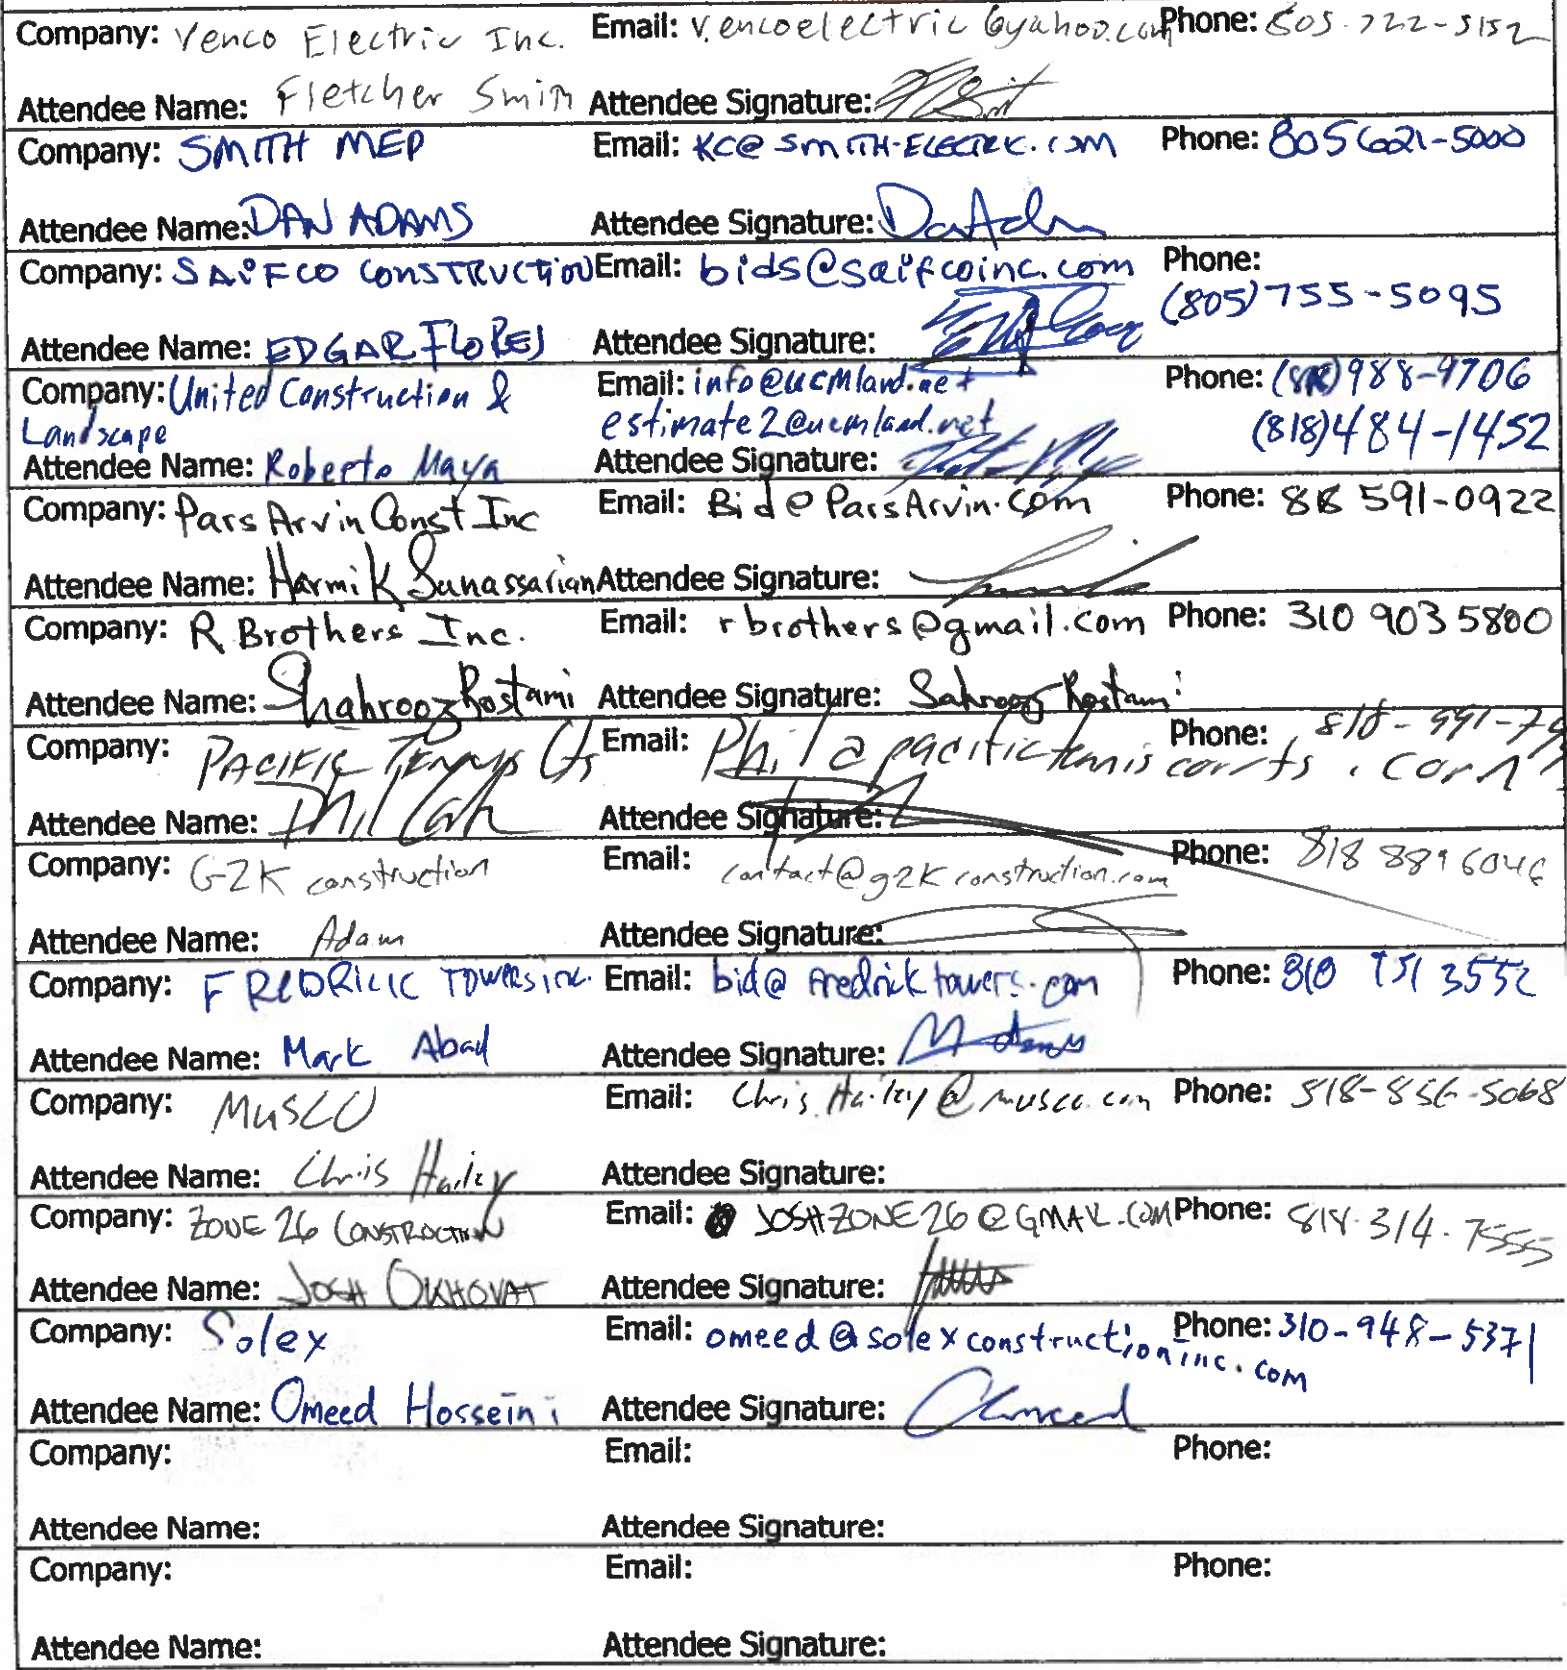 Company: Venco Electric Inc. Email: vencoelectric@yahoo.com Phone: 805-722-5152
Attendee Name: Fletcher Smith Attendee Signature:
Company: SMITH MEP Email: KC@SMITH-ELECTRIC.COM Phone: 805 621-5000
Attendee Name: DAN ADAMS Attendee Signature:
Company: SAIFCO CONSTRUCTION Email: bids@saifcoinc.com Phone:
(805) 755-5095
Attendee Name: EDGAR FLORES Attendee Signature:
Company: United Construction & Email: info@ucmland.net Phone: (818) 988-9706
Landscape estimate2@ucmland.net (818) 484-1452
Attendee Name: Roberto Maya Attendee Signature:
Company: Pars Arvin Const Inc Email: Bid@ParsArvin.com Phone: 818 591-0922
Attendee Name: Harmik Sanassarian Attendee Signature:
Company: R Brothers Inc. Email: rbrothers@gmail.com Phone: 310 903 5800
Attendee Name: Shahrooz Rostami Attendee Signature: Sahrooz Rostami
Company: PACIFIC Tennis Cts Email: Phil@pacifictenniscourts.com Phone: 818-991-
Attendee Name: Phil Attendee Signature:
Company: G2K construction Email: contact@g2kconstruction.com Phone: 818 889 6046
Attendee Name: Adam Attendee Signature:
Company: FREDRICK TOWERS inc. Email: bid@fredricktowers.com Phone: 751 3552
Attendee Name: Mark Abad Attendee Signature:
Company: MUSCO Email: Chris.Hailey@musco.com Phone: 818-856-5068
Attendee Name: Chris Hailey Attendee Signature:
Company: ZONE 26 CONSTRUCTION Email: JOSHZONE26@GMAIL.COM Phone: 818.314.7555
Attendee Name: JOSH OKHOVAT Attendee Signature:
Company: Solex Email: omeed@solexconstructioninc.com Phone: 310-948-5371
Attendee Name: Omeed Hosseini Attendee Signature: Omeed
Company: Email: Phone:
Attendee Name: Attendee Signature:
Company: Email: Phone:
Attendee Name: Attendee Signature: